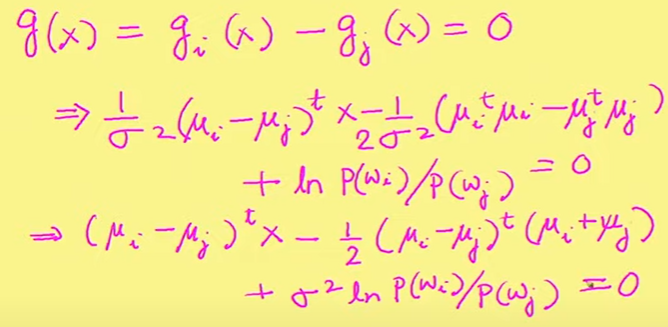 g(x) = g_i(x) - g_j(x) = 0
⇒ 1/σ² (μ_i - μ_j)^t x - 1/2σ² (μ_i^t μ_i - μ_j^t μ_j)
+ ln P(ω_i)/P(ω_j) = 0
⇒ (μ_i - μ_j)^t x - 1/2 (μ_i - μ_j)^t (μ_i + μ_j)
+ σ² ln P(ω_i)/P(ω_j) = 0